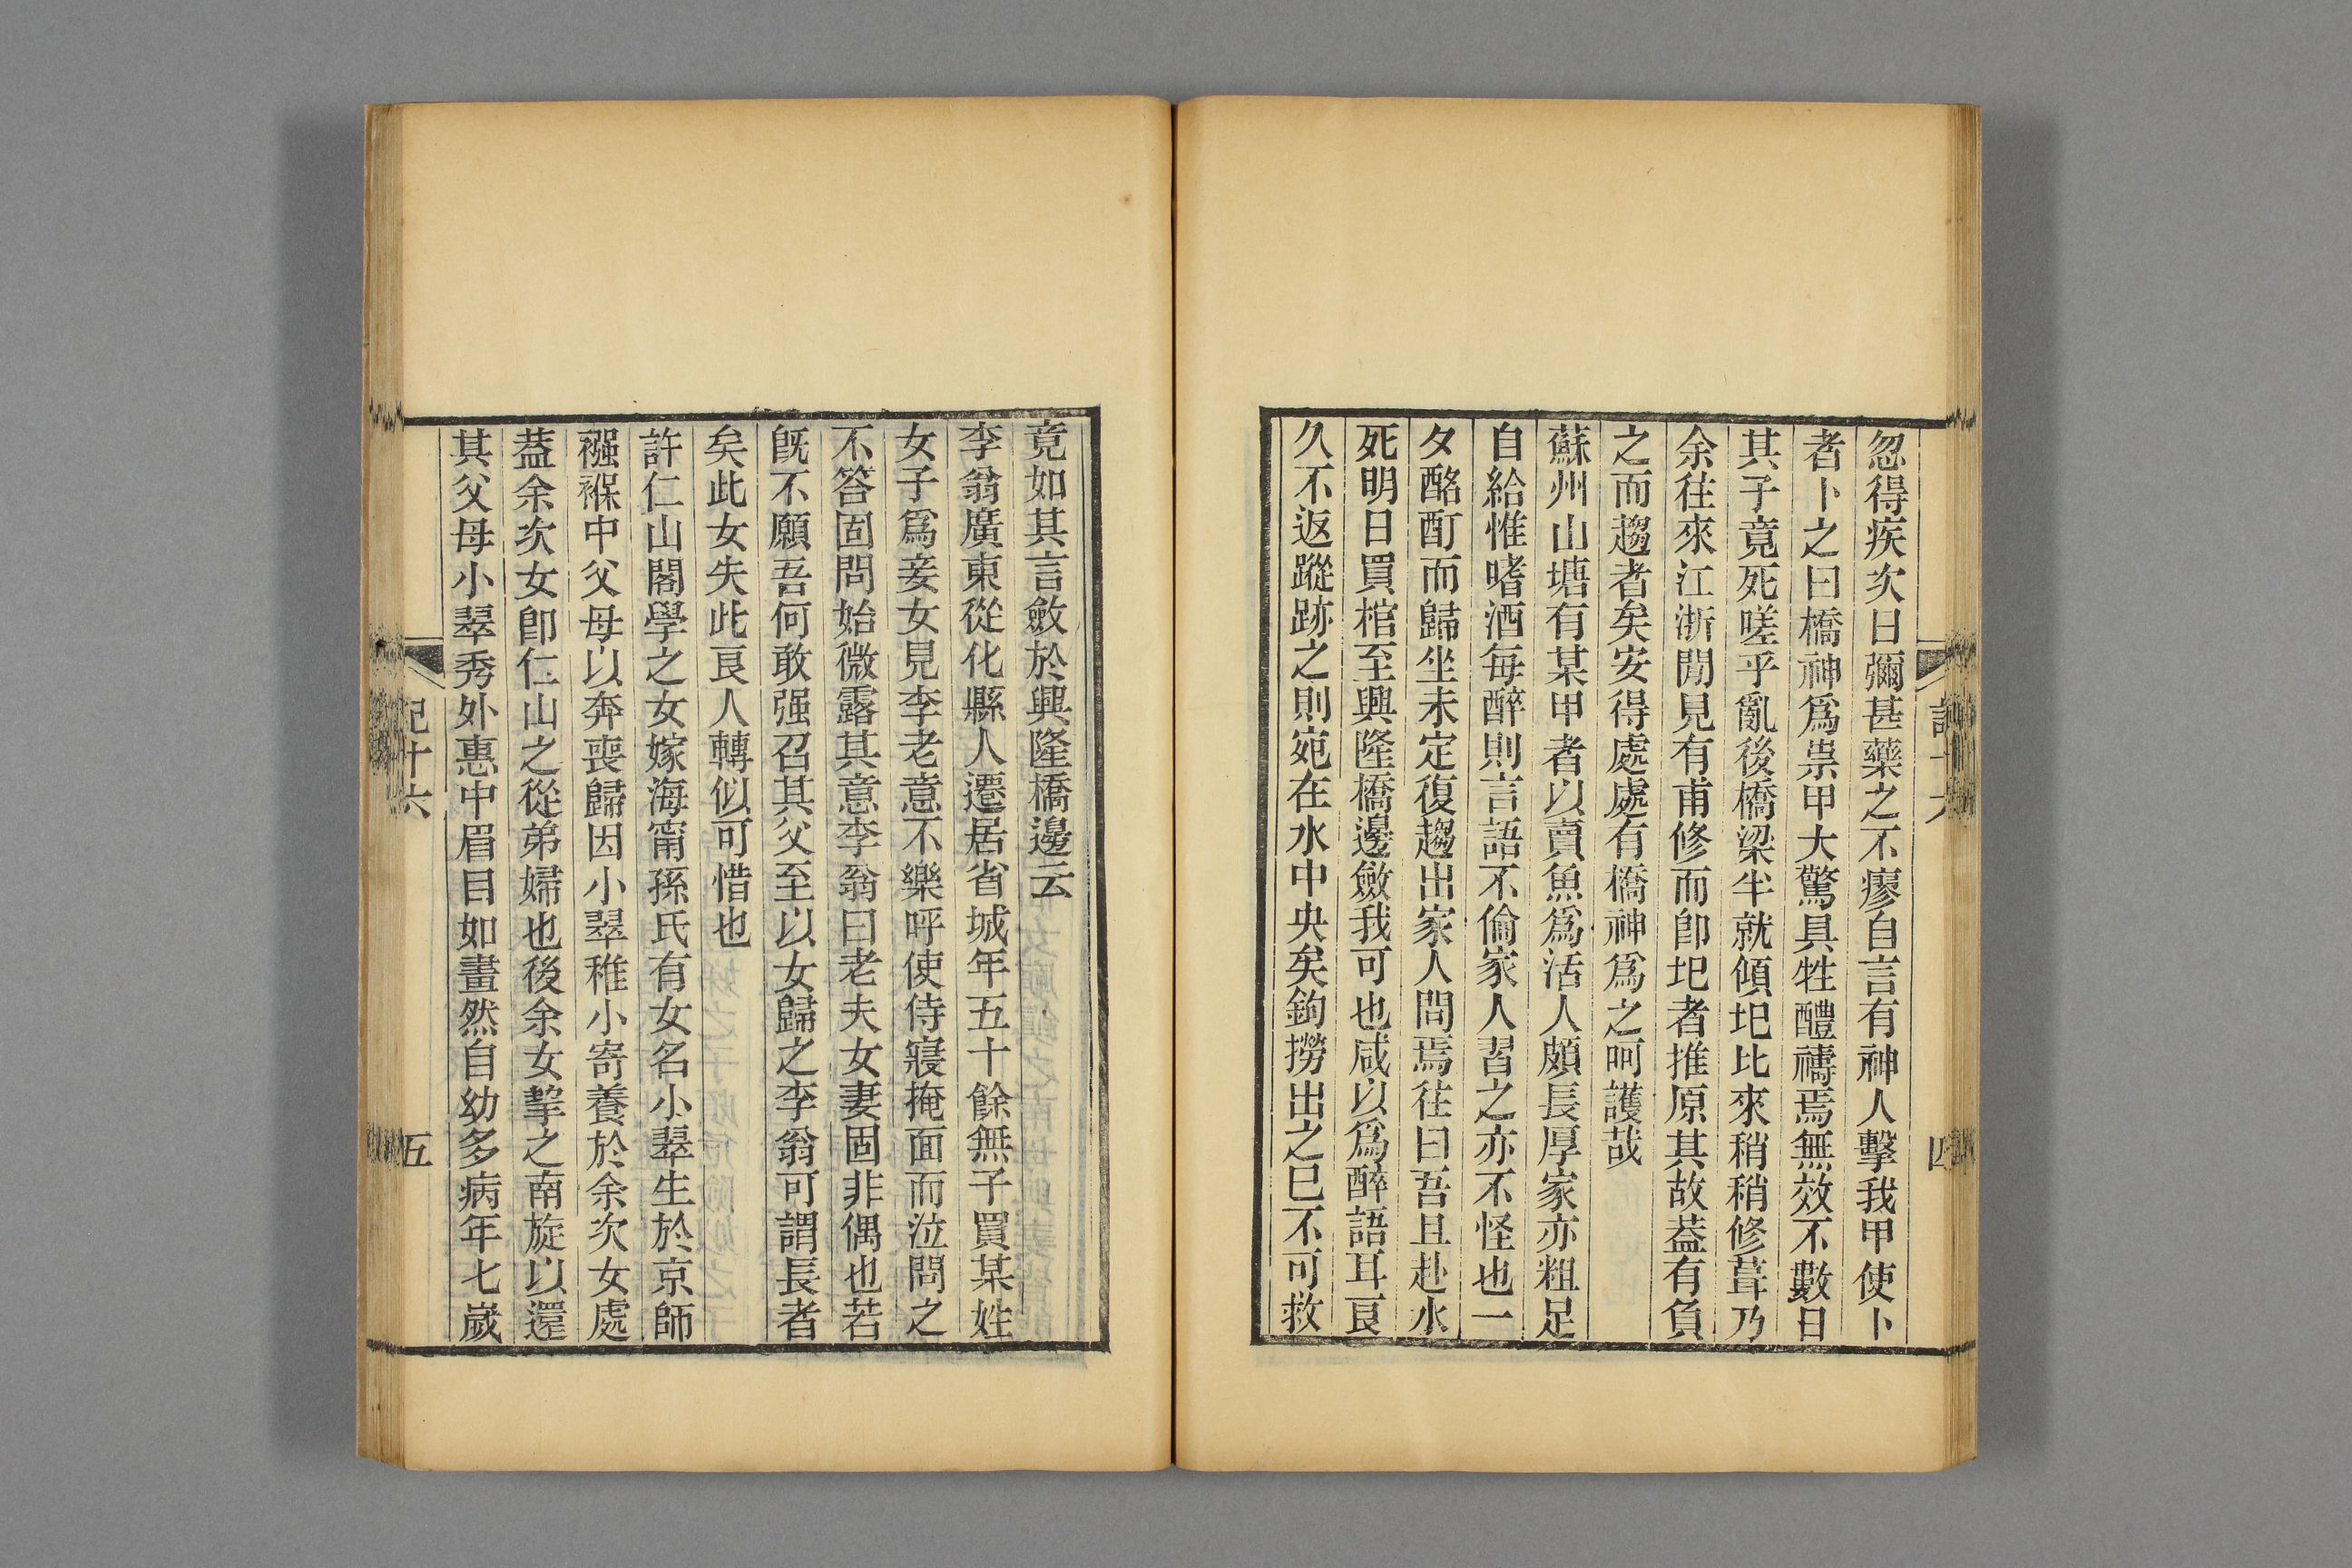 忽得疾次日彌甚藥之不瘳自言有神人擊我甲使卜
者卜之曰橋神爲祟甲大驚具牲醴禱焉無效不數日
其子竟死嗟乎亂後橋梁半就傾圮比來稍稍修葺乃
余往來江浙閒見有甫修而卽圮者推原其故葢有負
之而趨者矣安得處處有橋神爲之呵護哉
蘇州山塘有某甲者以賣魚爲活人頗長厚家亦粗足
自給惟嗜酒每醉則言語不倫家人習之亦不怪也一
夕酩酊而歸坐未定復趨出家人問焉往曰吾且赴水
死明日買棺至興隆橋邊斂我可也咸以爲醉語耳良
久不返蹤跡之則宛在水中央矣鉤撈出之已不可救
四
竟如其言斂於興隆橋邊云
李翁廣東從化縣人遷居省城年五十餘無子買某姓
女子爲妾女見李老意不樂呼使侍寢掩面而泣問之
不答固問始微露其意李翁曰老夫女妻固非偶也若
旣不願吾何敢强召其父至以女歸之李翁可謂長者
矣此女失此良人轉似可惜也
許仁山閣學之女嫁海甯孫氏有女名小翠生於京師
襁褓中父母以奔喪歸因小翠稚小寄養於余次女處
葢余次女卽仁山之從弟婦也後余女挈之南旋以還
其父母小翠秀外惠中眉目如畫然自幼多病年七歲
紀十六
五